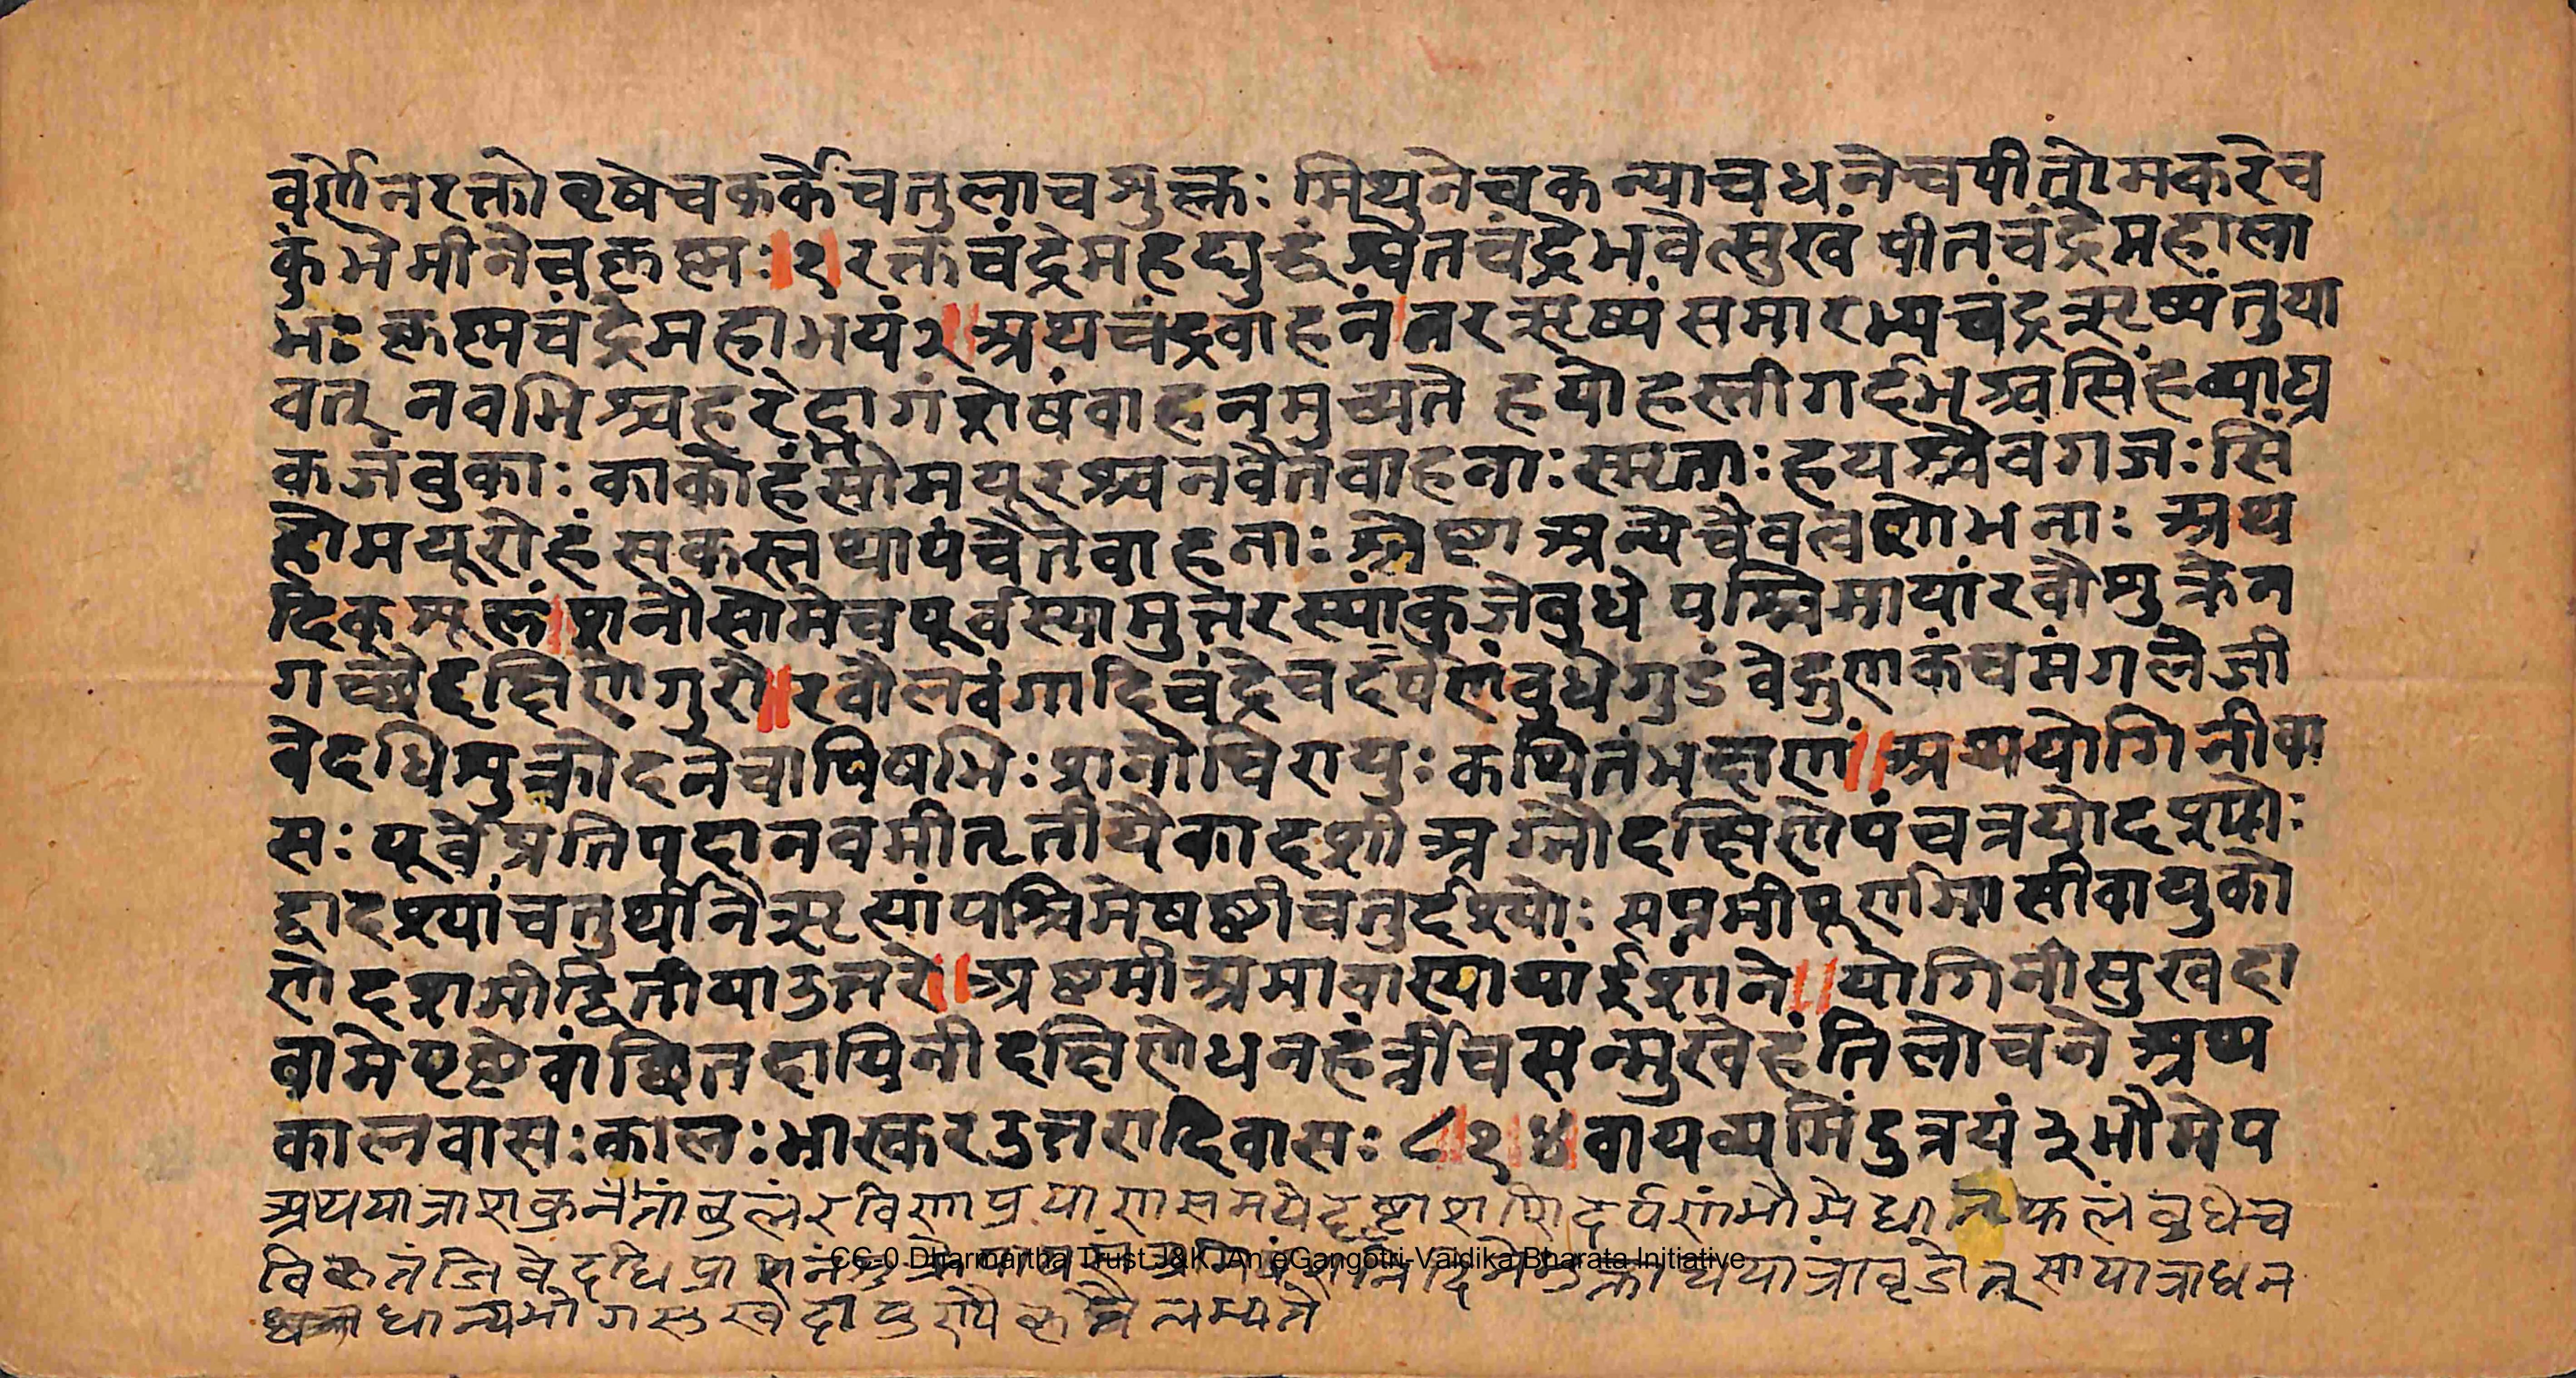 वर्णेनरक्तोवृषेचकर्केचतुलाचशुक्लः मिथुनेचकन्याचधनेचपीतोमकरेच
कुंभेमीनेचकृष्णः॥१रक्तचंद्रेमहद्युद्धंश्वेतचंद्रेभवेत्सुखं पीतचंद्रेमहाला
भः कृष्णचंद्रेमहाभयं२॥अथचंद्रवाहनं।नरऋष्यंसमारभ्यचंद्रऋष्यंतुया
वत् नवभिश्चहरेद्भागंशेषंवाहनमुच्यते हयोहस्तीगर्दभश्चसिंहव्याघ्र
कजंबुकाः काकोहंसोमयूरश्चनवैतेवाहनाःस्मृताः हयश्चैवगजःसिं
होमयूरोहंसकस्तथापंचैतेवाहनाः श्रेष्ठाअन्येचैवत्वशोभनाः अथ
दिक्शूलं।शनौसोमेचपूर्वस्यामुत्तरस्यांकुजेबुधे पश्चिमायांरवौशुक्रेन
गच्छेद्दक्षिणेगुरौ॥रवौलवंगादिचंद्रेचदर्पणंबुधेगुडंवेद्गुणकंचमंगलेजी
वेदधिशुक्रोदनेचापिषभिःशनौचिरायुःकथितंभदाणां॥अथयोगिनीवा
सः पूर्वेप्रतिपदानवमीतृतीयैकादशीअग्नौदक्षिणेपंचत्रयोदश्योः
द्वादश्यांचतुर्थीनैऋत्यांपश्चिमेषष्ठीचतुर्दश्योः सप्तमीपूर्णमासीवायुको
णेदशमीद्वितीयाउत्तरे॥अष्टमीअमावास्यायांईशाने॥योगिनीसुखदा
वामेपृष्ठेवांछितदायिनीदक्षिणेधनहंत्रीचसन्मुखेहंतिलोचने अथ
कालवासःकालःभास्करउत्तरादिवासः ८॥१॥४वायव्यमिंदुत्रयं३भौमेप
अथयात्राशकुनेतांबुलंरविणाप्रयाणसमयेदृष्ट्वाशशिदर्पणंभौमेधानफलंबुधेच
दधिप्राशनं सायात्राधन
धान्यभोगसुखदा लभ्यते
CC-0 Dharmartha Trust J&K. An eGangotri-Vaidika Bharata Initiative